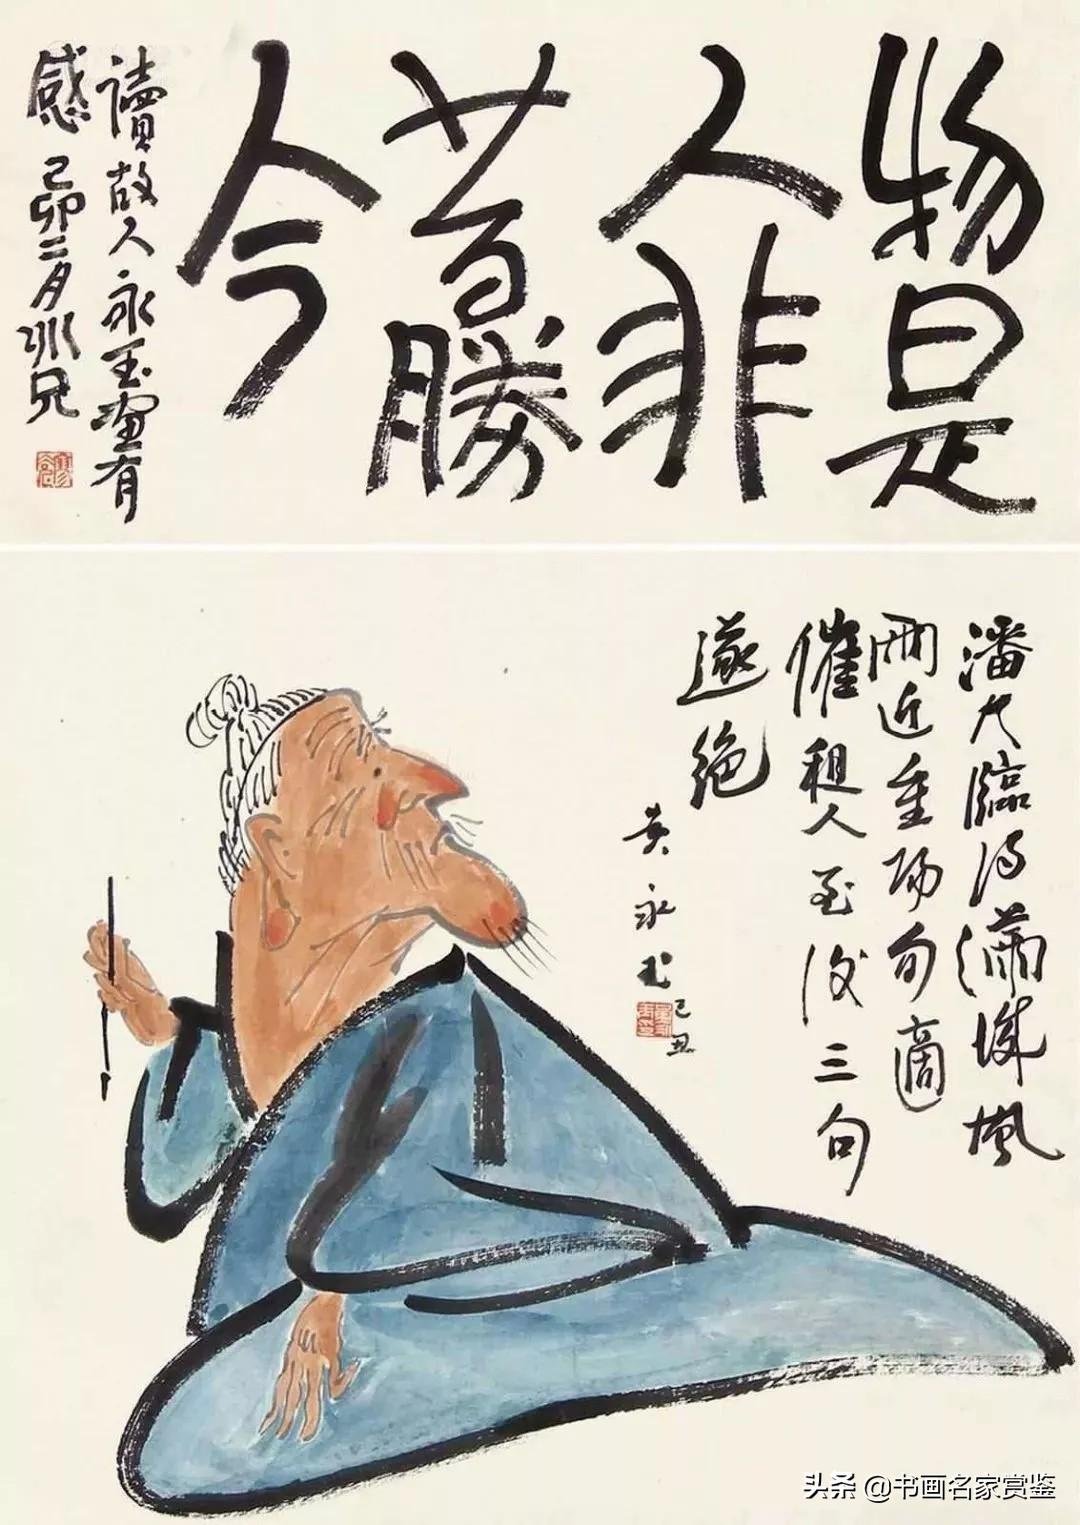 物是
人非
昔勝
今
讀故人永玉畫有
感 己卯二月冰兄
潘大臨得滿城風
雨近重陽句適
催租人至後三句
遂絕
黄永玉 己丑
头条 @书画名家赏鉴